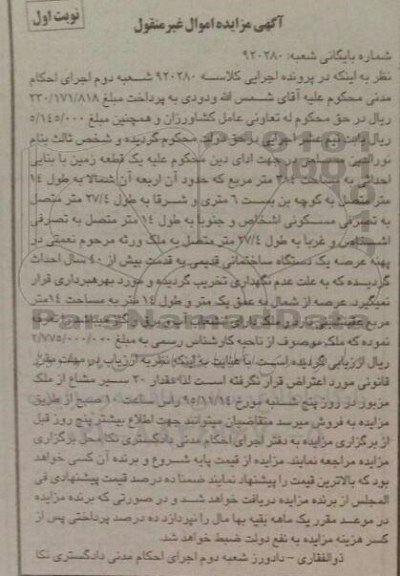 نوبت اول
آگهی مزایده اموال غیر منقول
شماره بایگانی شعبه: ۹۲۰۲۸۰
نظر به اینکه در پرونده اجرایی کلاسه ۹۲۰۲۸۰ شعبه دوم اجرای احکام
مدنی محکوم علیه آقای شمس الله ودودی به پرداخت مبلغ ۲۳۰/۱۷۱/۸۱۸
ریال در حق محکوم له تعاونی عامل کشاورزان و همچنین مبلغ ۵/۱۴۵/۰۰۰
ریال بابت نیم عشر اجرایی در حق دولت محکوم گردیده و شخص ثالث بنام
جهت ادای دین محکوم علیه یک قطعه زمین با بنای
احداثی مساحت ۳۸۴ متر مربع که حدود آن اربعه آن شمالا به طول ۱۴
متر متصل به کوچه بن بست ۶ متری و شرقا به طول ۲۷/۴ متر متصل
به تصرفی مسکونی اشخاص و جنوبا به طول ۱۴ متر متصل به تصرفی
اشخاص و غربا به طول ۲۷/۴ متر متصل به ملک ورثه مرحوم نعمتی در
پهنه عرصه یک دستگاه ساختمانی قدیمی به قدمت بیش از ۴۰ سال احداث
گردیده که به علت عدم نگهداری تخریب گردیده و مورد بهره‌برداری قرار
نمیگیرد. عرصه از شمال به عمق یک متر و طول ۱۴ متر به مساحت ۱۴ متر
مربع عقب‌نشینی دارد و ملک دارای انشعاب آب و برق و گاز
نموده که ملک موصوف از ناحیه کارشناس رسمی به مبلغ ۲/۷۷۵/۰۰۰/۰۰۰
ریال ارزیابی گردیده است. با عنایت به اینکه نظریه ارزیاب در مهلت مقرر
قانونی مورد اعتراض قرار نگرفته است لذا مقدار ۲۰ سیر مشاع از ملک
مزبور در روز پنج شنبه مورخ ۹۵/۱۱/۱۴ راس ساعت ۱۰ صبح از طریق
مزایده به فروش میرسد متقاضیان میتوانند جهت اطلاع بیشتر پنج روز قبل
از برگزاری مزایده به دفتر اجرای احکام مدنی دادگستری نکا محل برگزاری
مزایده مراجعه نمایند. مزایده از قیمت پایه شروع و برنده آن کسی خواهد
بود که بالاترین قیمت را پیشنهاد نمایند ضمنا ده درصد قیمت پیشنهادی فی
المجلس از برنده مزایده دریافت خواهد شد و در صورتی که برنده مزایده
در موعد مقرر یک ماهه بقیه بها مال را نپردازد ده درصد پرداختی پس از
کسر هزینه مزایده به نفع دولت ضبط خواهد شد.
ذوالفقاری - دادورز شعبه دوم اجرای احکام مدنی دادگستری نکا
ParsNamadData